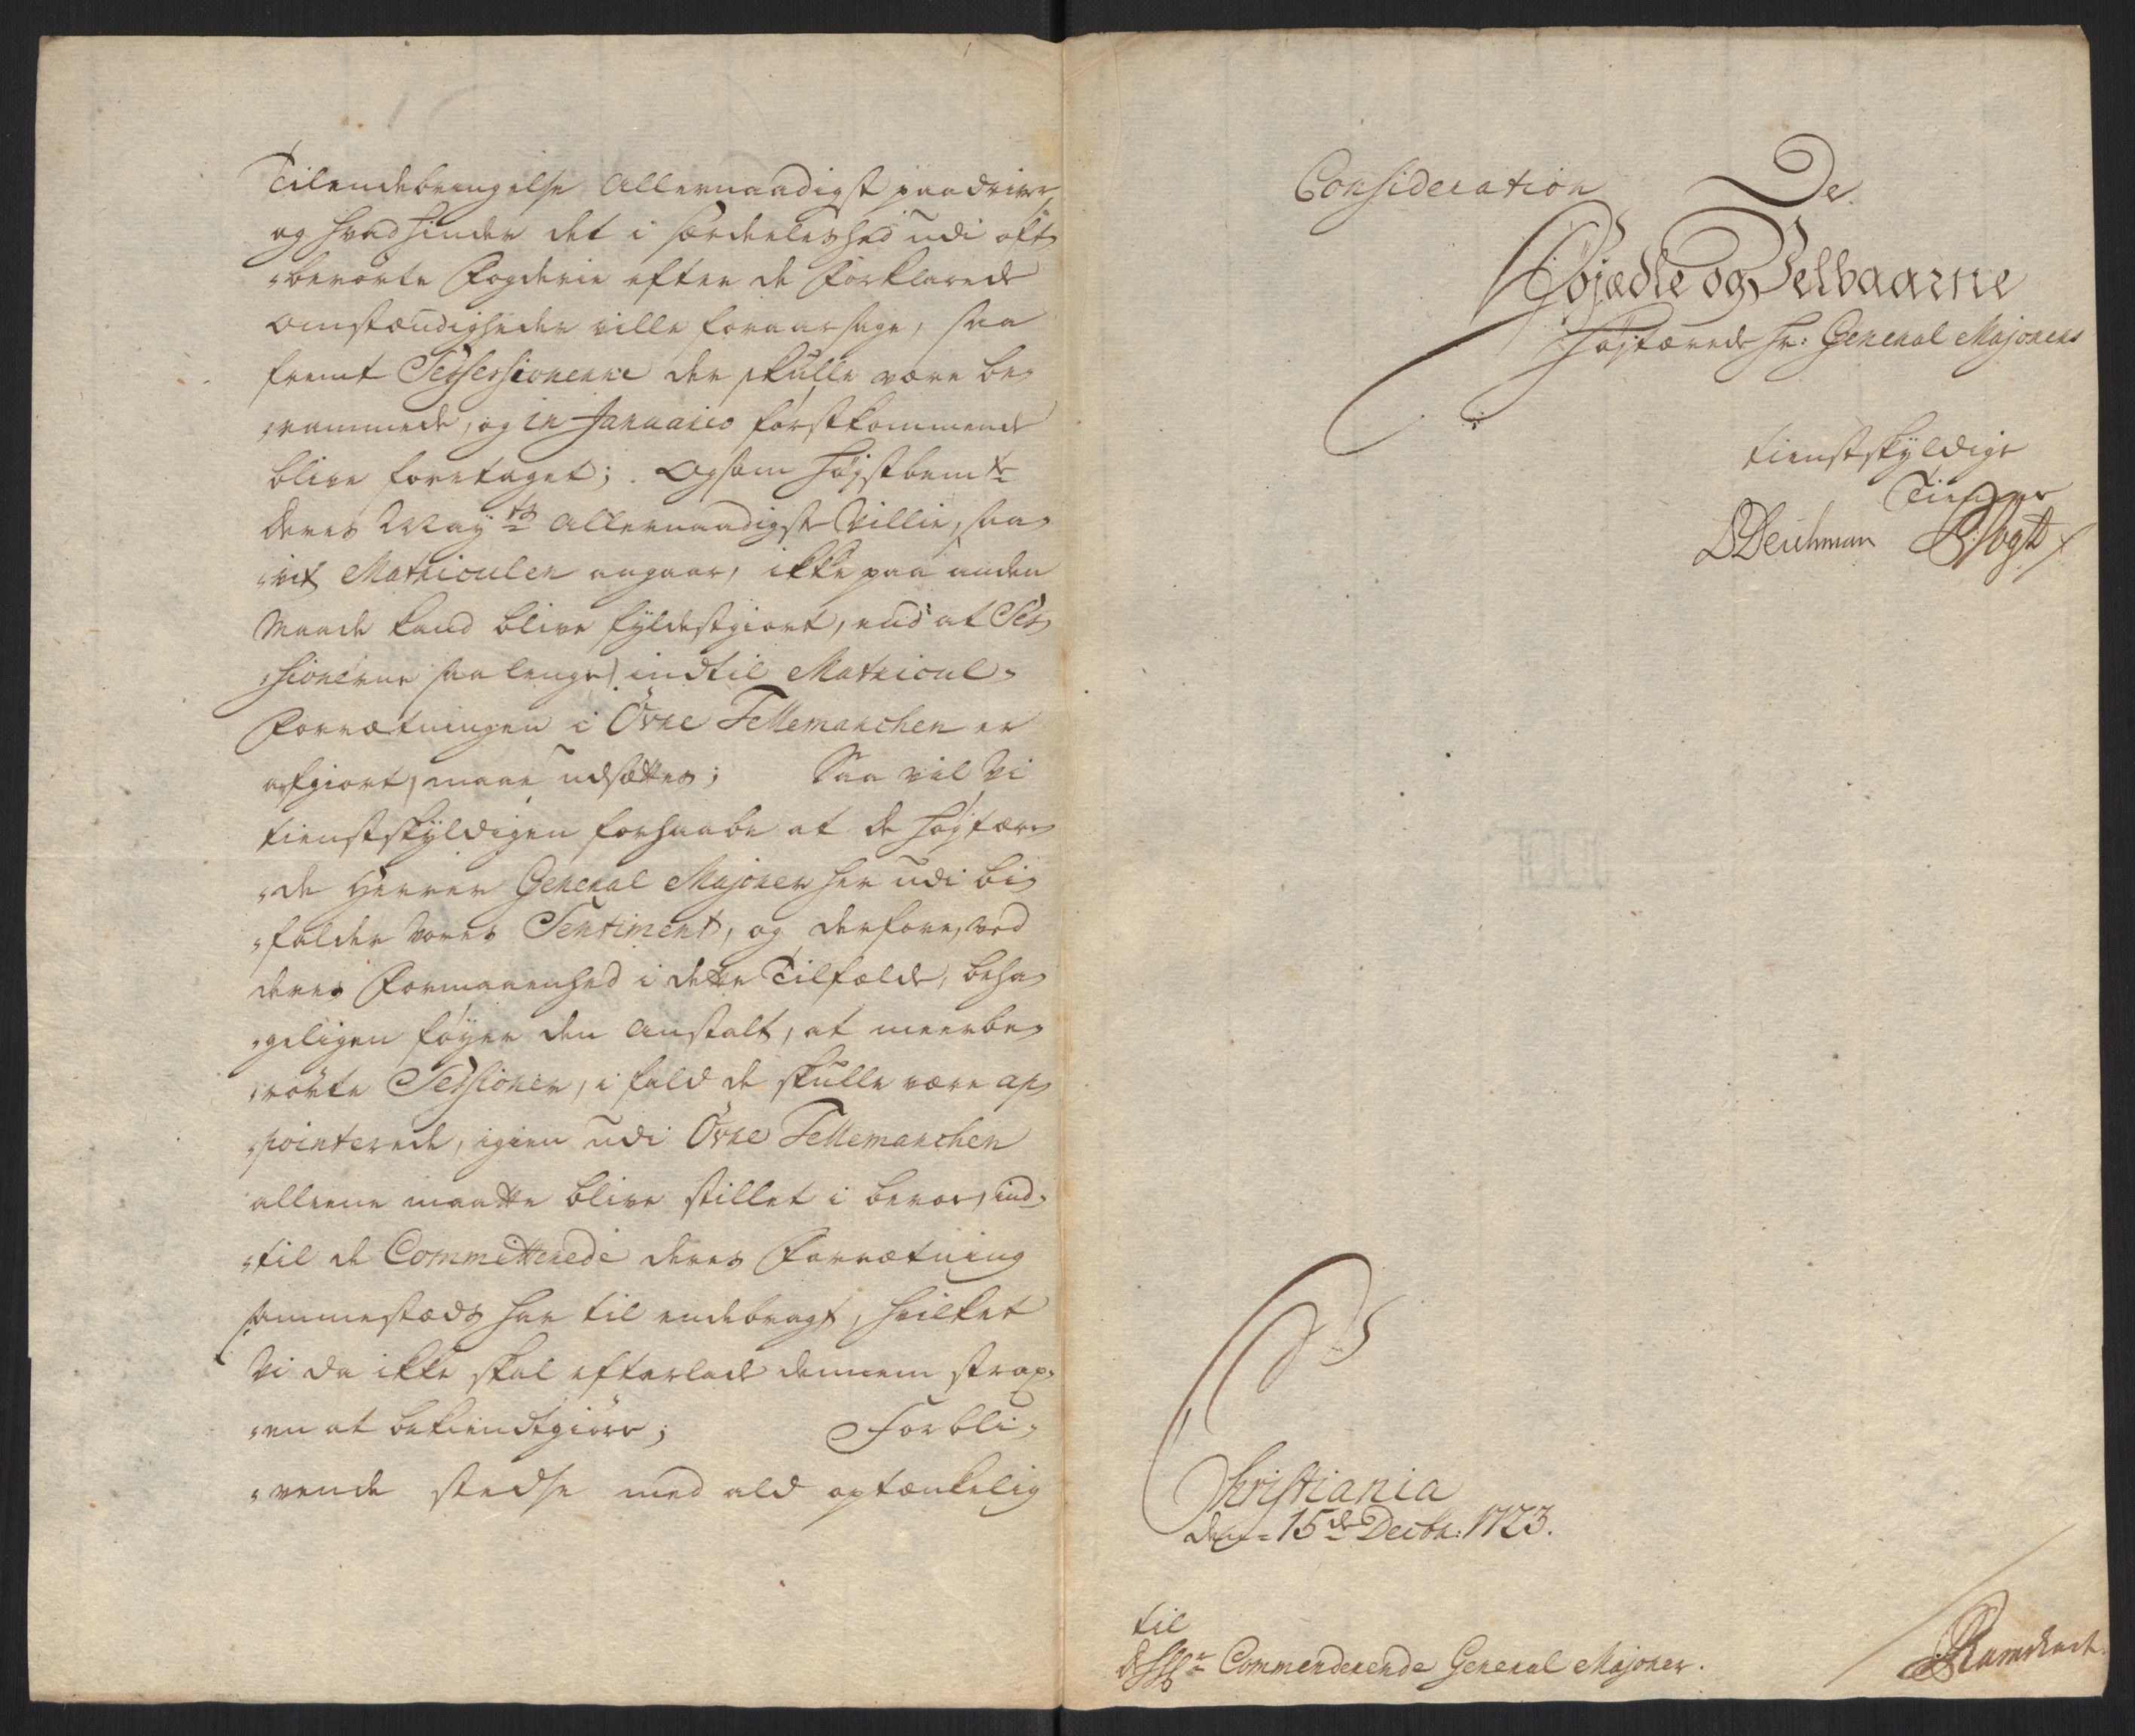 Tilendebringelse Allernaadigst paadriver,
og hvad hinder det i særdeleshed udi oft,
,,berørte Fogderie efter de forklarede
omstændigheder ville foraarsage, saa
fremt Sessessionerne der skulle være be,
,,rammede, og in Januario førstkommende
blive foretaget; Og som høystbemte
Deres Mayts Allernaadigste Villie, saa,
,,vit Matriculen angaar, ikke paa anden
Maade kand blive fyldestgiort, end at Ses,
,,sionerne saa lenge, indtil Matricul,
Forrætningen i Övre Tellemarchen er
afgiort, maae udsættes; Saa vil Vi
tienstskyldigen forhaabe at de høytære,
,,de Herrer General Majorer her udi bi,
,,falder vores Sentiment, og derfore, ved
deres Formaaenhed i dette Tilfælde, beha,
,,geligen føyer den Anstalt, at meerbe,
,,rørte Sessioner, i fald de skulle være ap,
,,pointerede, igien udi Övre Tellemarchen
alleene maatte blive stillet i beroe, ind,
,,til de Committerede deres Forrætning
sammestæds har til endebragt, hvilket
Vi da ikke skal efterlade dennem strax,
,,en at bekiendtgiøre; Forbli,
,,vende stedse med ald optænkelig
Consideration
De
Høyædle og Velbaarne
Høytærede Hr: General Majorers
tienstskyldige
Tienere
BDeichman JVogt
Christiania
den 15de Decbr: 1723.
til
de Commenderende General Majorer.
Ramshart.